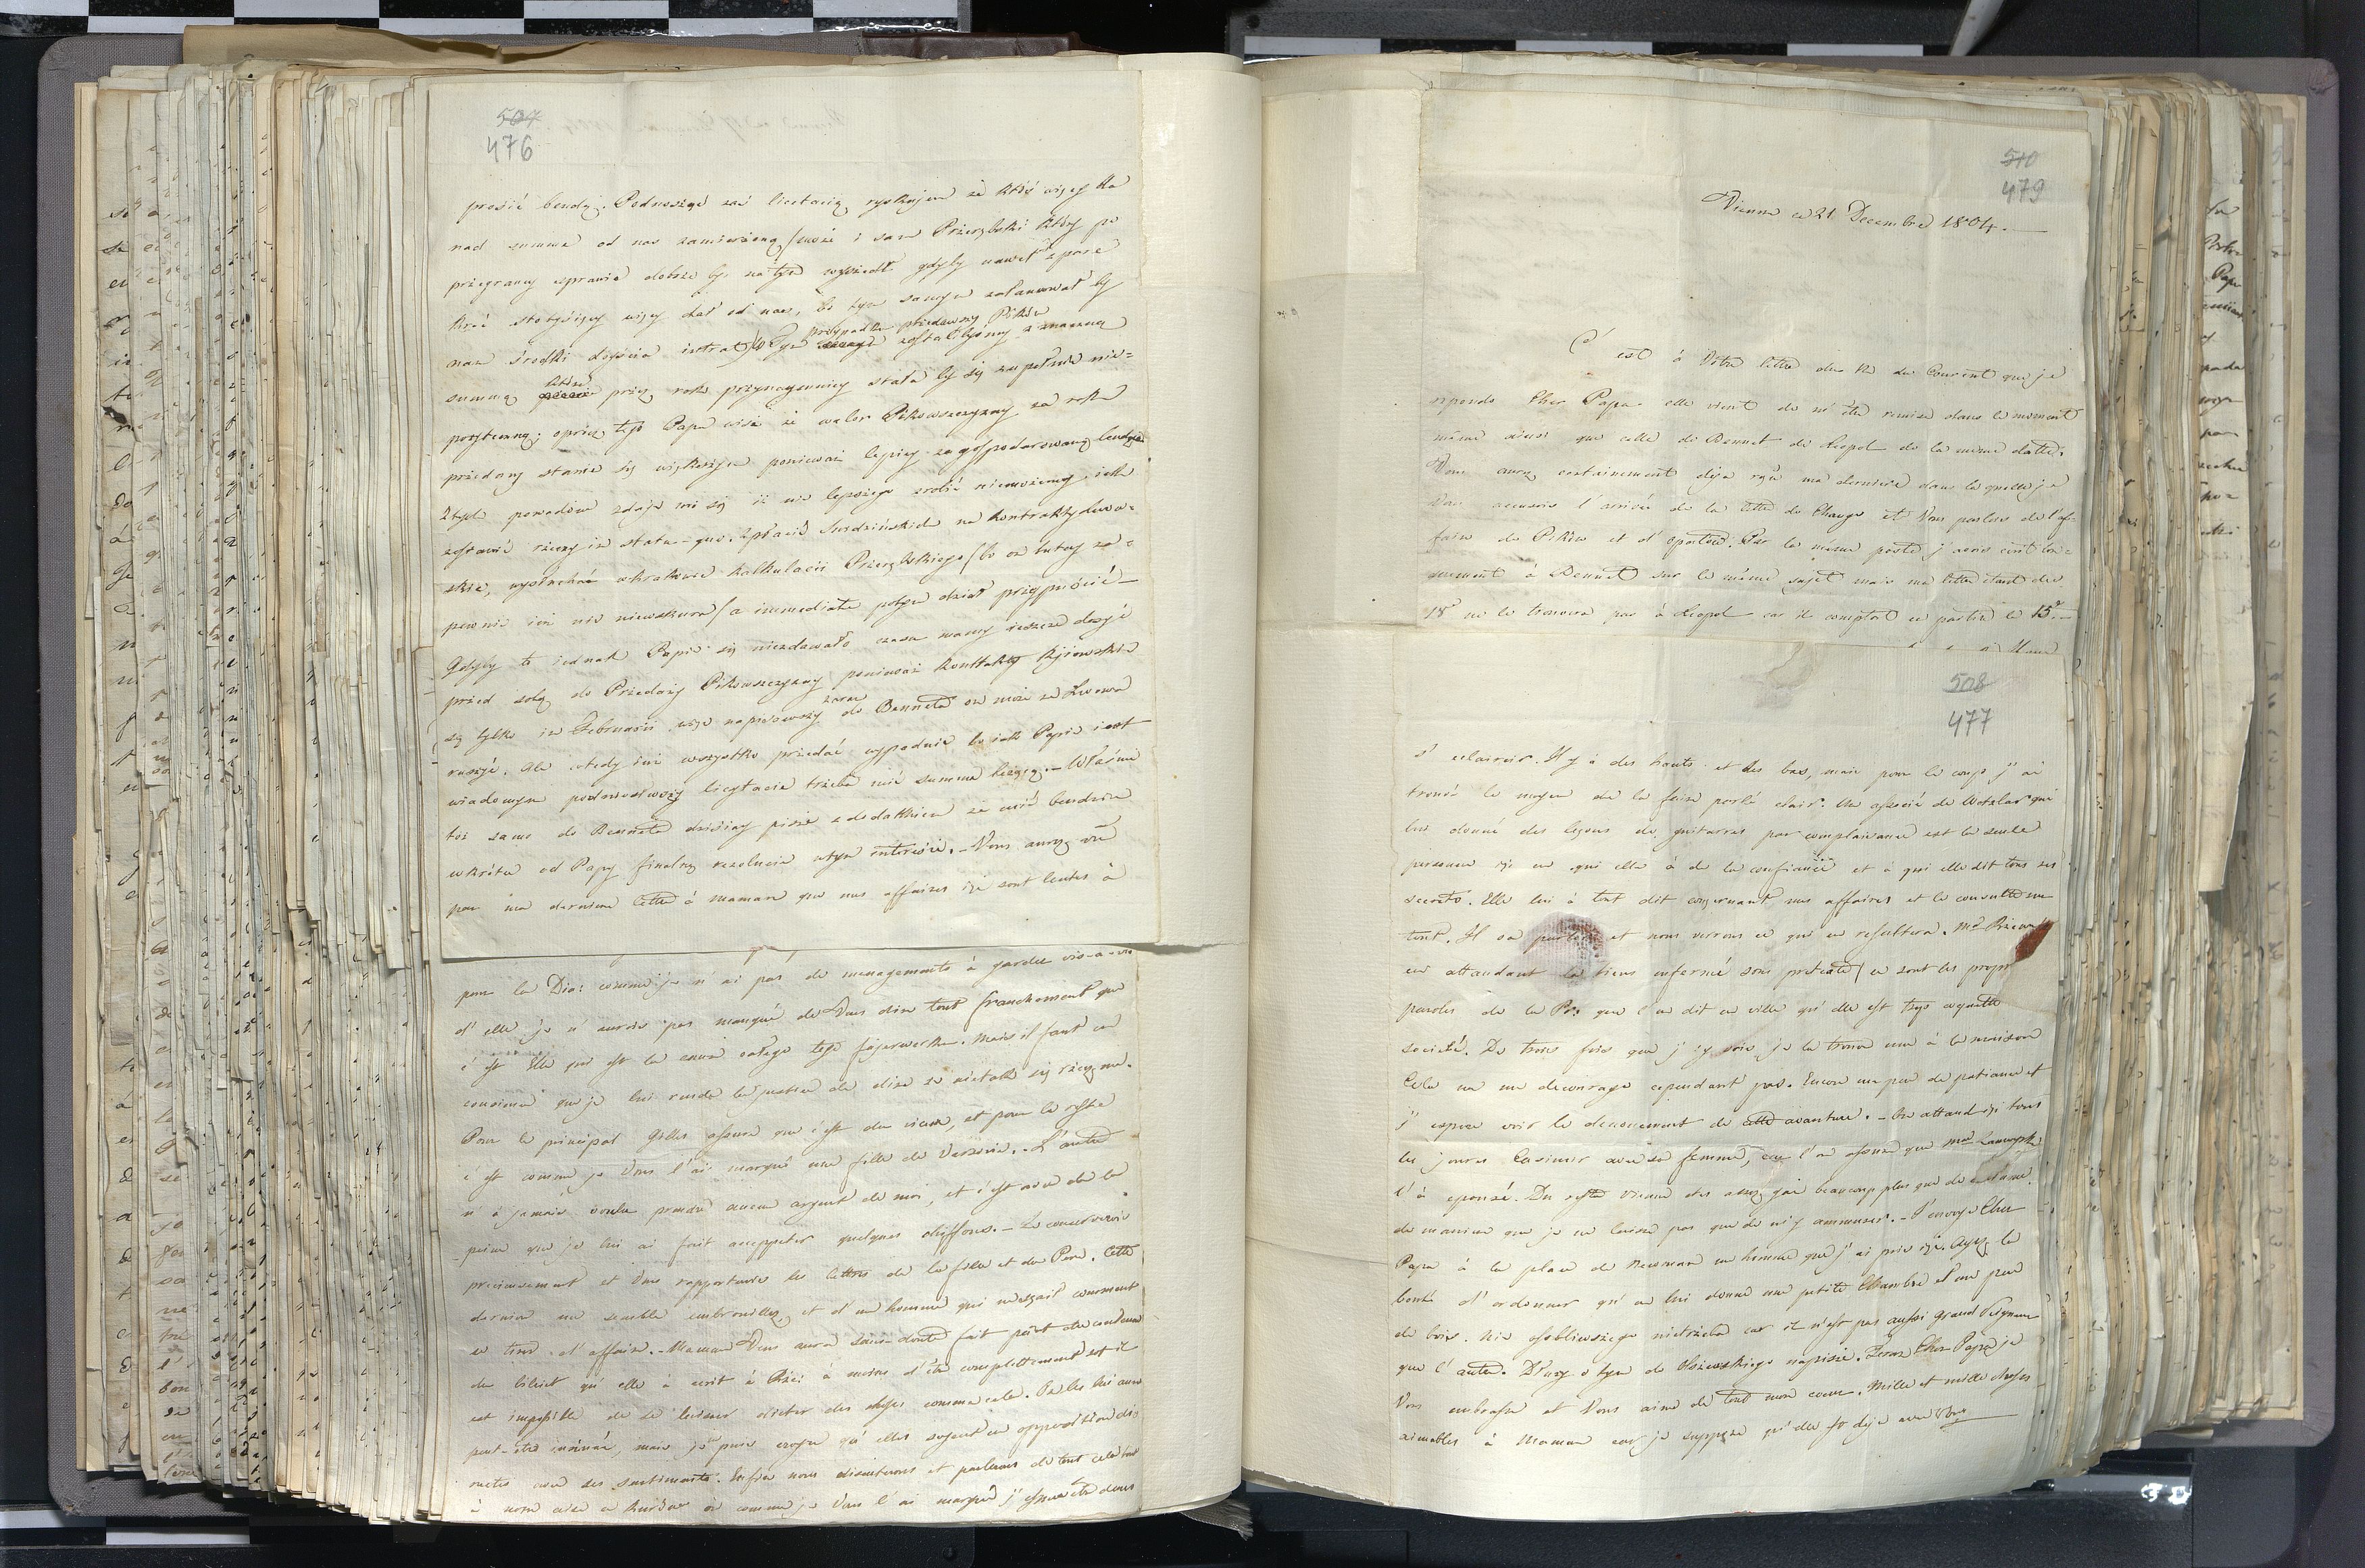 507
476
prosić bendę. Podnosząc zaś licitacią ryzkujem że ktoś więcy da
nad summę od nas zamierzoną (może i sam Przerębski który po
przegraney sprawie dobrze by na tym wyszedł gdyby nawet z parę
kroć stotysięcy więcy dał od nas, bo tym samym zatamował by
nam środki dojścia intrat) W tym przypadku przedawszy Pików zostalibyśmy z znaczną
summą, która przez rok przynaymniey stała by się zupełnie nie=
pożyteczną; oprócz tego Papa wie że walor Pikowszczyzny za rok
przedany stanie się większym ponieważ lepiey zagospodarowaną bendzie
Ztych powodów zdaje mi się iż nic lepszego zrobić niemożemy iak
zostawić rzeczy in statu-quo. Zpłacić Surdzińskich na kontraktydubo=
skie, wysłuchać w krakowie kalkulacii Przerębskiego (bo on tutay za=
pewnie iuż nic niewskura) a immediate potym dział przyspieszyć
Gdyby to iednak Papie się niezdawało czasu mamy ieszcze dosyć
przed sobą do Przedaży Pikowszczyzny ponieważ kontrakty Kijowskie
są tylko in Februarii więc napisawszy zaraz do Benneta on może ze Lwowa
ruszyć. Ale wtedy iuż wszystko przedać wypadnie bo iak Papie iest
wiadomym podnosiwszy licytacia trzeba mić summę leżącą. — Właśnie
toż samo do Benneta dzisiay piszę z dodatkiem że mić bendzie
wkrótce od Papy finalną rezolucią wtym interesie. — Vous aurez vu
par ma derniere lettre à maman que nos affaires içi sont lentes à
pour la Dia: comme je n'ai pas de menagements à garder vis-a-vis
d'elle je n'aurois pas manqué de Vous dire tout franchement que
c'est Elle qui est la cause całego tego fajerwerku. Mais il faut en
conscience que je lui rende la justice de dire że nietak się rzecz ma.
Pour le principal Gilles assure que c'est du vieux, et pour le reste
c'est comme je Vous l'ai marqué une fille de Varsovie. L'autre
n'a jamais voulu prendre aucun argent de moi, et c'est avec de la
peine que je lui ai fait accepter quelques chiffons. — Je conserverai
precieusement et Vous rapporterai les lettres de la fille et du Pere. Cette
derniere me semble embrouillée, et d'un homme qui nesçait comment
se tirer d'affaire. — Maman Vous aura sans-doute fait part du contenu
du billet qu'elle à ecrit à Rze: à moins d'être complettement sot il
est impossible de se laisser dicter des choses comme cela. On les lui aura
peut-être insinué, mais je ne puis croyre qu'elles soyent en opposition di=
recte avec ses sentiments. Enfin nous discuterons et parlerons de tout cela tout
à notre aise a Kurów où comme je Vous l'ai marqué j'espere être dans
510
479
Vienne ce 21 Decembre 1804.
C'est à Votre lettre du 12 du Courent que je
reponds Cher Papa elle vient de m'être remise dans le moment
même ainsi que celle de Bennet de Leopol de la même datte.
Vous aurez certainement déja reçu ma derniere dans la quelle je
Vous accusois l'arrivée de la lettre de Change et Vous parlois de l'af=
faire de Pików et d'Opatów. Par la même poste j'avois ecrit lon=
guement à Bennet sur le même sujet mais ma lettre étant du
18e ne le trouvera pas à Leopol car il comptoit en partir le 15e.
508
477
s'eclaircir. Il y à des hauts et des bas, mais pour le coup j'ai
trouvé le moyen de la faire parler clair. Un associé de Wetzlar qui
lui donne des leçons de guitarres par complaisance est la seule
personne içi en qui elle à de la confiance et à qui elle dit tous ses
secrets. Elle lui à tout dit concernant nos affaires et le consulte sur
tout. Il va parler et nous verrons ce qui en resultera. Md Rzewu
en attandant la tiens enfermé sous pretexte (ce sont les propr
paroles de la Pr: que l'on dit en ville qu'elle est trop coquette
societé. De trois fois que j'y vois je la trouve une à la maison
Cela ne me decourage cependant pas. Encore un peu de patience et
j'espere voir le denouement de cette avanture. — On attand içi tous
les jours Casimir avec sa femme, car l'on assure que Md
l'à eponsé. Du reste Vienne est assez gai beaucoup plus que de coutume
de maniere que je ne laisse pas que de m'y ammuser. — J'envoye Cher
Papa à la place de Neuman un homme que j'ai pris içi. Ayez la
bonté d'ordonner qu'on lui donne une petite Chambre et un peu
de bois. Nic osobliwszego nietrzeba car il n'est pas aussi grand Seigneur
que l'autre. Dłuzy o tym do napiszę. Teraz Cher Papa je
Vous embrasse et Vous aime de tout mon coeur. Mille et mille choses
aimables à Maman car je suppose qu'elle est deja avec Vous